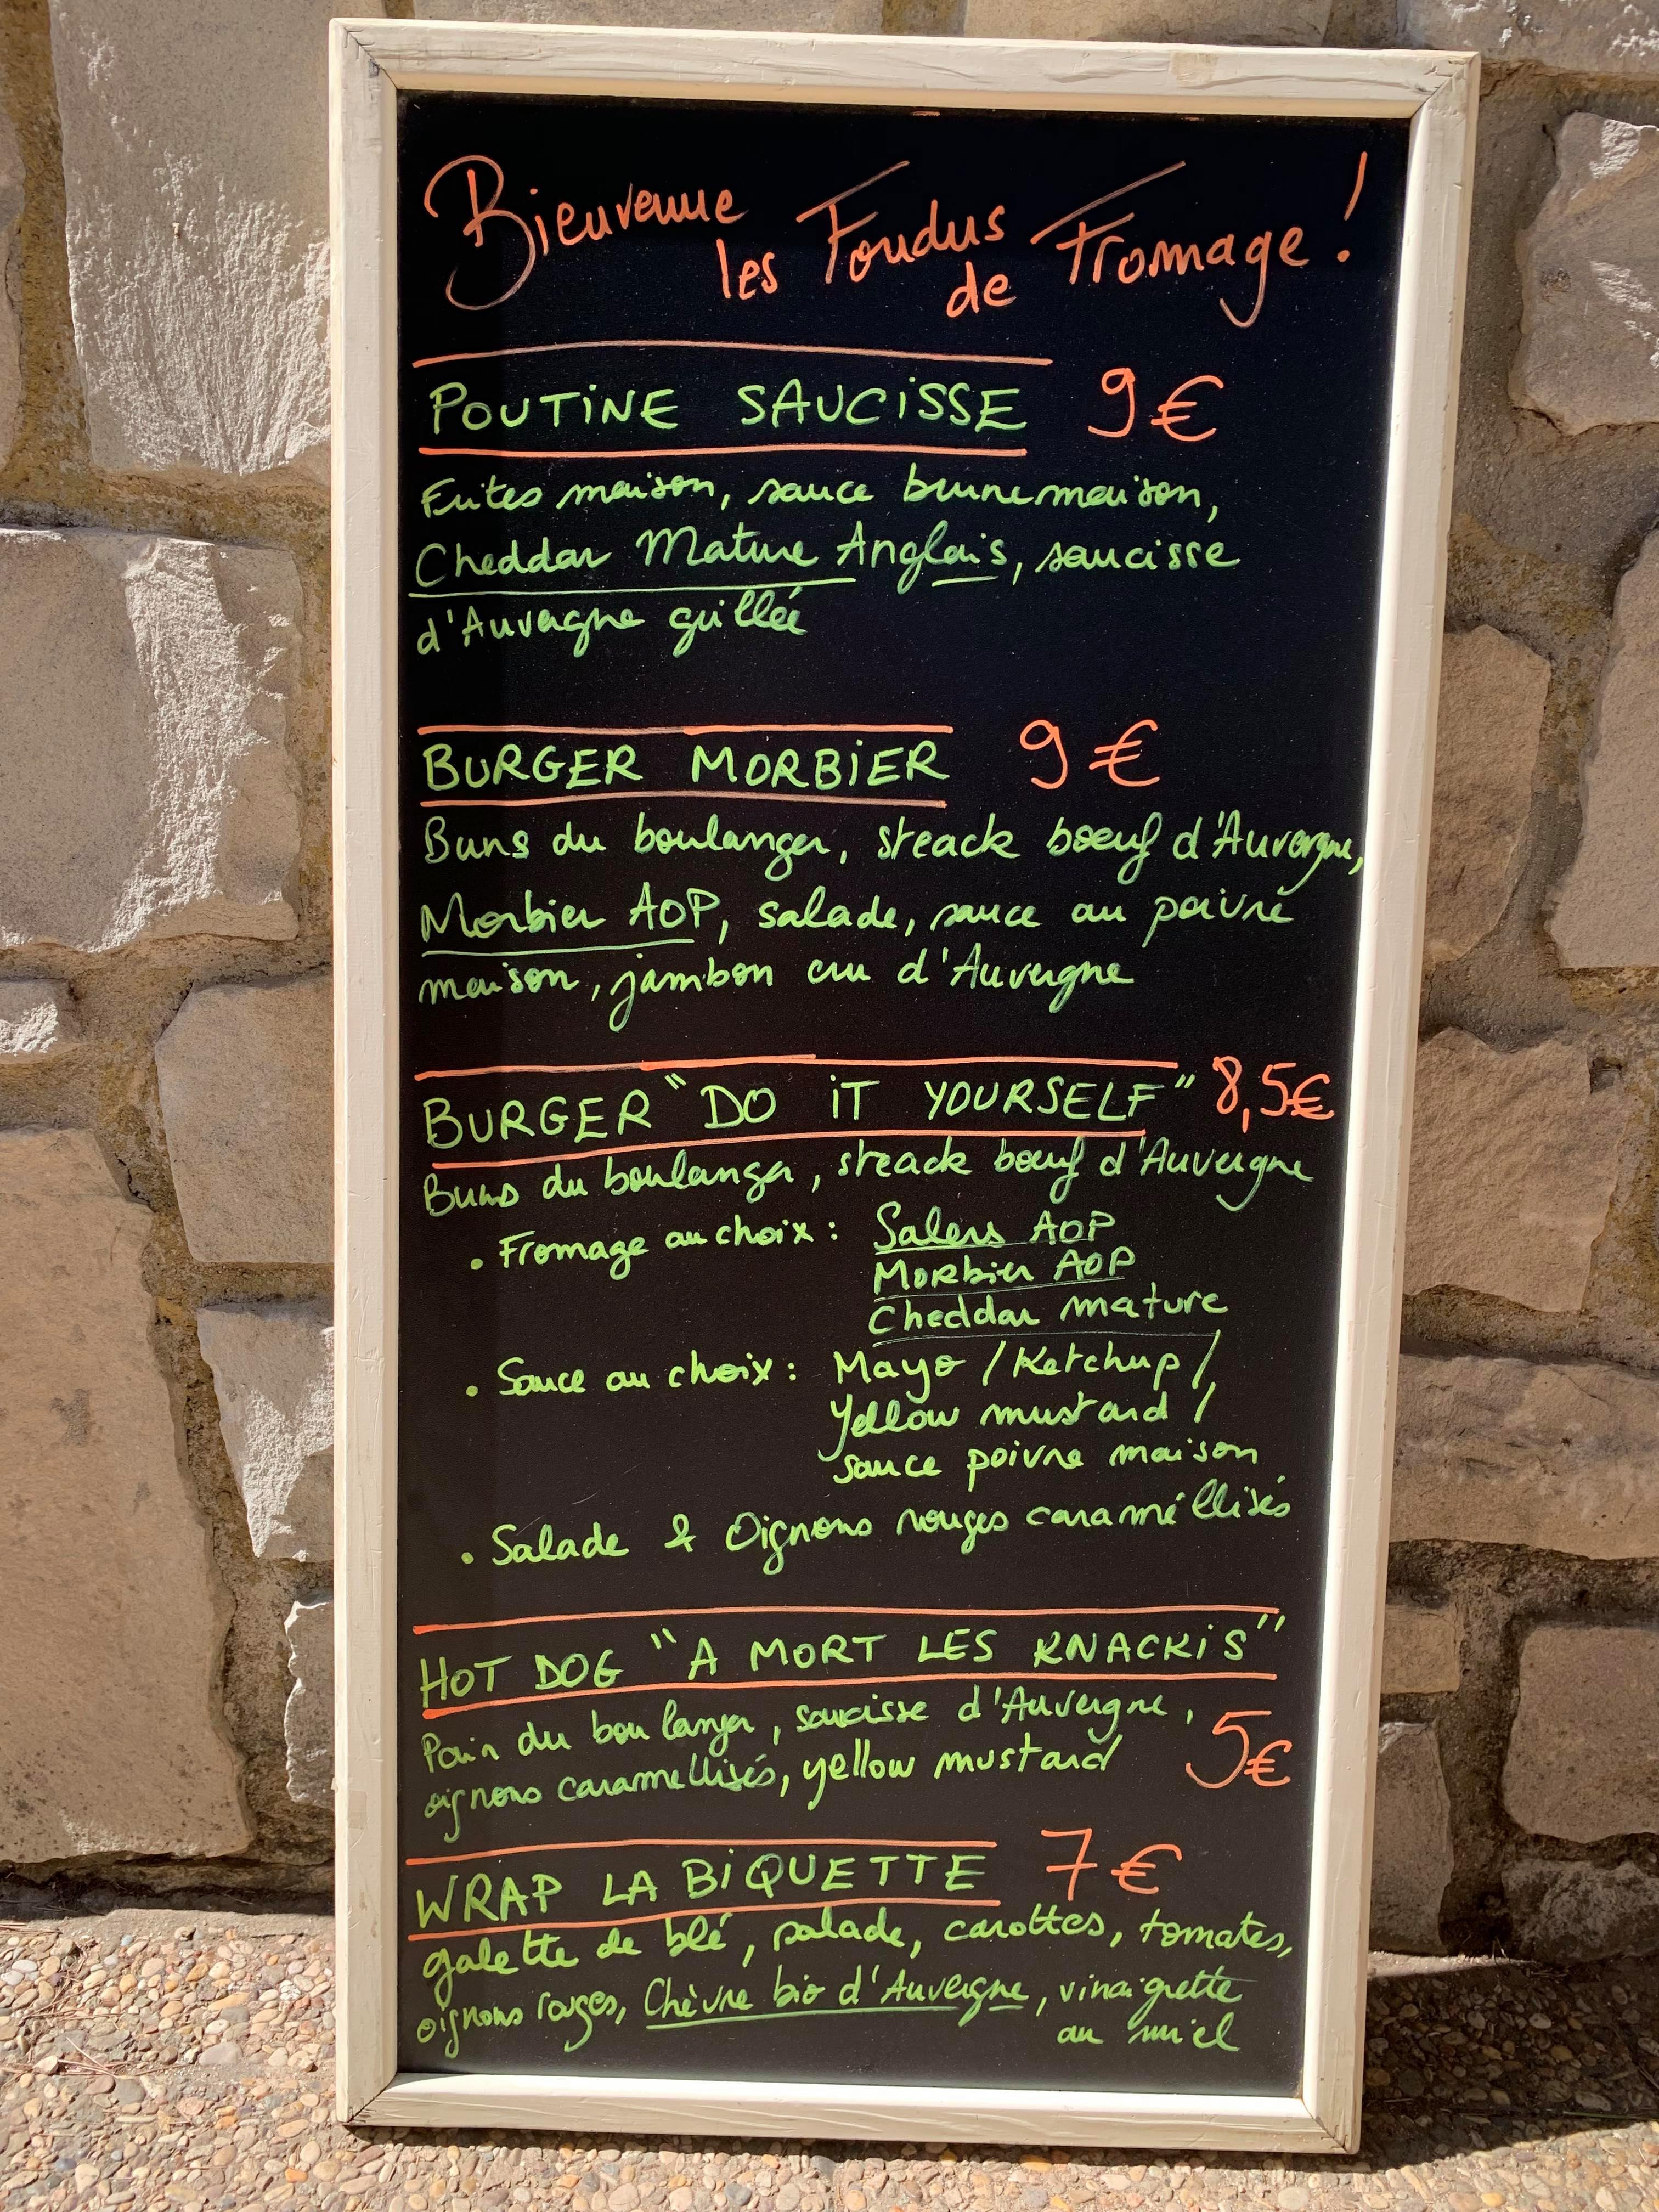 Bienvenue
les Foudus
de Fromage !
POUTINE SAUCISSE 9€
Frites maison, sauce brune maison,
Cheddar Mature Anglais, saucisse
d'Auvergne grillée
BURGER MORBIER 9€
Buns du boulanger, steack boeuf d'Auvergne,
Morbier AOP, salade, sauce au poivre
maison, jambon cru d'Auvergne
BURGER "DO IT YOURSELF" 8,5€
Buns du boulanger, steack boeuf d'Auvergne
• Fromage au choix : Salers AOP
Morbier AOP
Cheddar mature
• Sauce au choix : Mayo / Ketchup /
Yellow mustard /
sauce poivre maison
• Salade & Oignons rouges caraméllisés
HOT DOG "A MORT LES KNACKIS"
Pain du boulanger, saucisse d'Auvergne,
oignons caramellisés, yellow mustard 5€
WRAP LA BIQUETTE 7€
galette de blé, salade, carottes, tomates,
oignons rouges, Chèvre bio d'Auvergne, vinaigrette
au miel